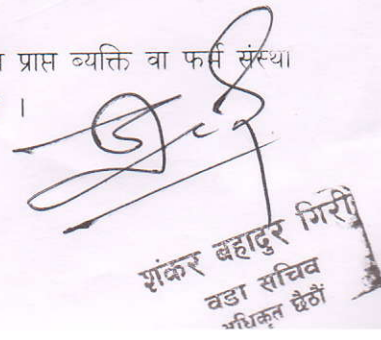 प्राप्त व्यक्ति वा फर्म संस्था
।
शंकर बहादुर गिरी
वडा सचिव
अधिकृत छैठौं